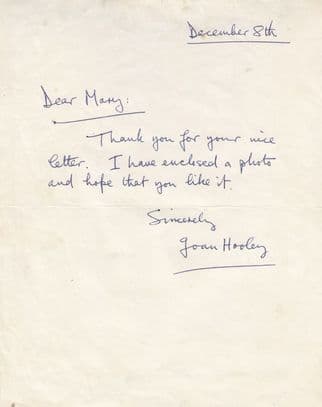 December 8th
Dear Mary:
Thank you for your nice
letter. I have enclosed a photo
and hope that you like it.
Sincerely
Joan Hooley